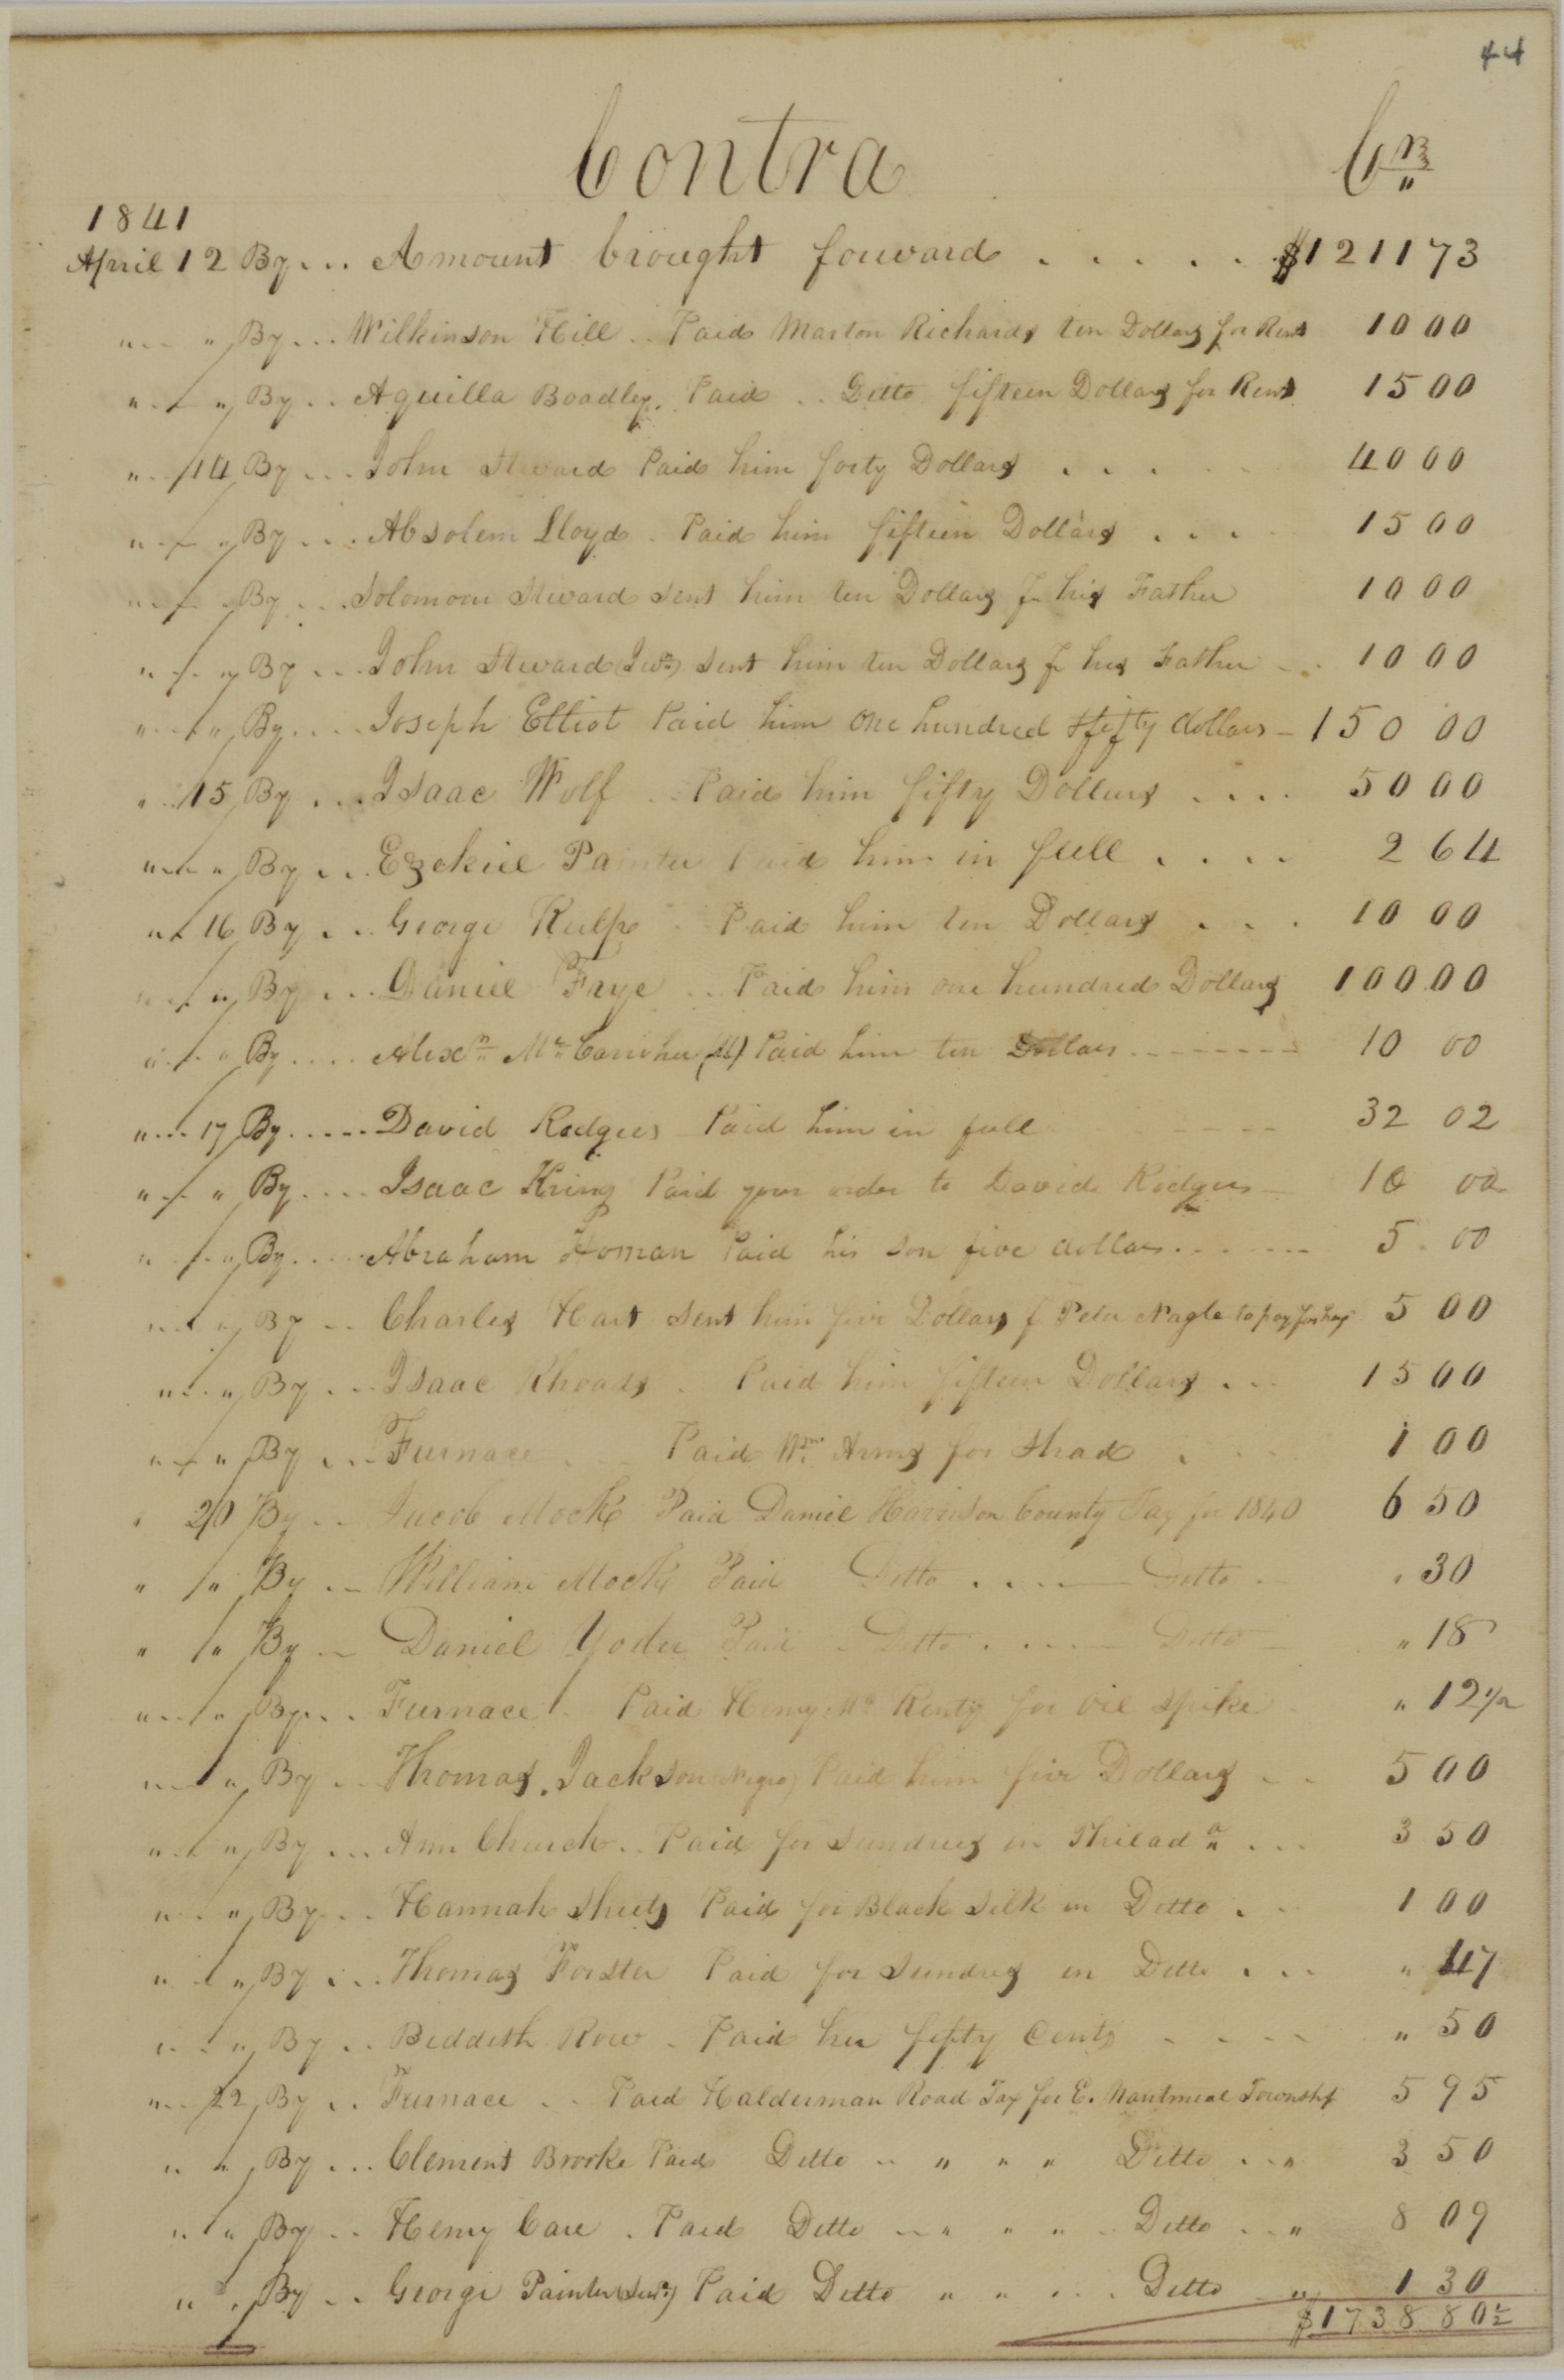 44
Contra Cr
1841
April 12 By... Amount brought forward . . . . . $1211 73
" " By... Wilkinson Hill .. Paid Marton Richards ten Dollars for Rent 10 00
" " By .. Aquilla Boadley. Paid .. Ditto fifteen Dollars for Rent 15 00
" 14 By ... John Steward Paid him forty Dollars . . . 40 00
" " By ... Absolem Lloyd . Paid him fifteen Dollars . . . 15 00
" " By ... Solomon Steward sent him ten Dollars f his Father 10 00
" " By ... John Steward (Jur) sent him ten Dollars f his Father - . 10 00
" " By .... Joseph Elliot Paid him one hundred & fifty dollars - 150 00
" 15 By ... Isaac Wolf .. Paid him fifty Dollars .... 50 00
" " By ... Ezekiel Painter Paid him in full .... 2 64
" 16 By ... George Kulp . Paid him ten Dollars ... 10 00
" " By ... Daniel Frye .. Paid him one hundred Dollars 100 00
" " By .... Alexr Mc Paid him ten Dollars -------- 10 00
" 17 By ..... David Rodgers Paid him in full ---- 32 02
" " By .... Isaac Kring Paid your order to David Rodgers - 10 00
" " By .... Abraham Homan Paid his son five dollars ....... 5 00
" " By .. Charles Hart sent him five Dollars f Peter Nagle to pay for hay 5 00
" " By ... Isaac Rhoads . Paid him fifteen Dollars ... 15 00
" " By ... Furnace . .. Paid Wm Arms for Shad . 1 00
" 20 By .. Jacob Mock Paid Daniel Harrison County Tax for 1840 6 50
" " By .. William Mock Paid Ditto .... Ditto - " 30
" " By -- Daniel Yoder Paid - Ditto .... Ditto - " 18
" " By... Furnace . Paid Henry Mc Kenty for oil spike " 12 1/2
" " By .. Thomas Jackson (Negro) Paid him five Dollars .. 5 00
" " By ... Ann Church .. Paid for sundries in Philada ... 3 50
" " By ... Hannah Sheets Paid for Black Silk in Ditto . 1 00
" " By ... Thomas Forster Paid for sundries in Ditto ... " 47
" " By .. Beddith Row . Paid her fifty Cents .... " 50
" 22 By .. Furnace .. Paid Halderman Road Tax for E. Nantmeal Townshp 5 95
" " By ... Clement Brooke Paid Ditto .. " " " Ditto .. " 3 50
" " By .. Henry Care . Paid Ditto .. " " " Ditto .. " 8 09
" " By .. George Painter (Jur) Paid Ditto " " .. Ditto " 1 30
$1738 80 1/2